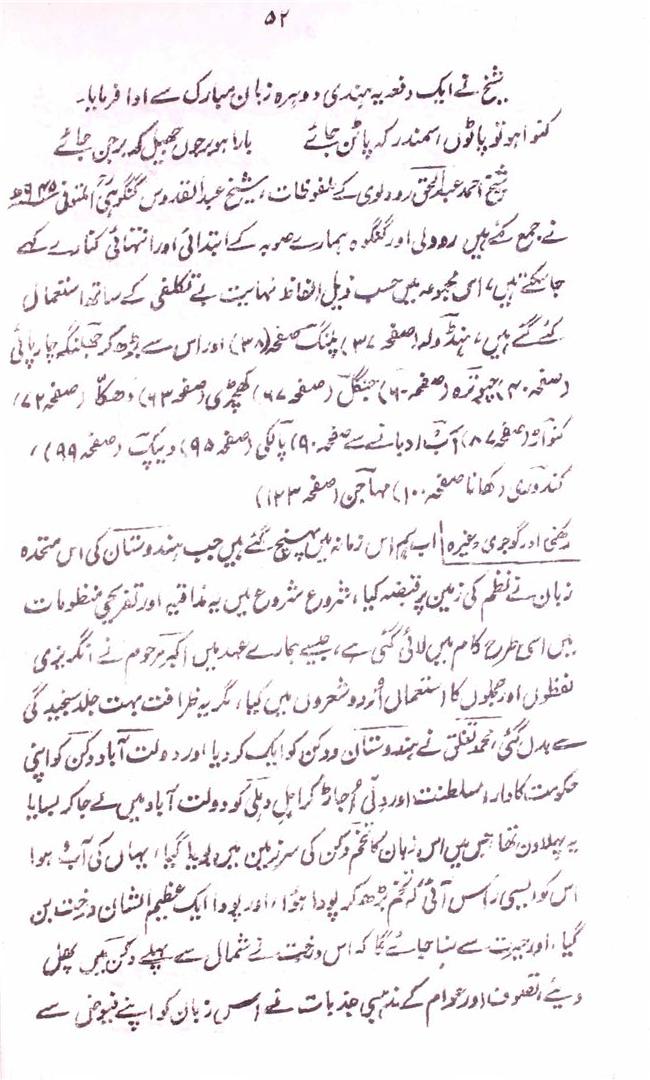 ۵۲
شیخ نے ایک دفعہ یہ ہندی دوہرہ زبان مبارک سے ادا فرمایا۔
کنوا ہو تو پاٹوں اسمندر کہ پاٹن جائے بارا ہو برجوں جھیل کہ برجن جائے
شیخ احمد عبدالحق رودلوی کے ملفوظات، شیخ عبدالقدوس گنگوہی المتوفی ۹۴۵ھ
نے جمع کئے ہیں رودلی اور گنگوہ ہمارے صوبہ کے ابتدائی اور انتہائی کنارے کہے
جا سکتے ہیں، اس مجموعہ میں حسب ذیل الفاظ نہایت بے تکلفی کے ساتھ استعمال
کئے گئے ہیں، ہنڈولہ (صفحہ ۳۷) پلنگ صفحہ (۳۸) اور اس سے بڑھ کر جھلنگہ چارپائی
(صفحہ ۴۰) چبوترہ (صفحہ ۶۰) جنگل (صفحہ ۶۷) کھچڑی (صفحہ ۶۳) دھکا (صفحہ ۷۲)
کنواڑ (صفحہ ۸۷) آب ادبانے سے صفحہ ۹۰) پالکی (صفحہ ۹۵) دیپک (صفحہ ۹۹)،
کندوری کھانا صفحہ ۱۰۰) مہاجن (صفحہ ۱۲۳)
دکھنی اور گوجری وغیرہ اب ہم اس زمانہ میں پہنچ گئے ہیں جب ہندوستان کی اس متحدہ
زبان نے نظم کی زمین پر قبضہ کیا، شروع شروع میں یہ مذاقیہ اور تفریحی منظومات
میں اسی طرح کام میں لائی گئی ہے، جیسے ہمارے عہد میں اکبر مرحوم نے انگریزی
لفظوں اور جملوں کا استعمال اُردو شعروں میں کیا، مگر یہ ظرافت بہت جلد سنجیدگی
سے بدل گئی، محمد تغلق نے ہندوستان و دکن کو ایک کر دیا اور دولت آباد دکن کو اپنی
حکومت کا دار السلطنت اور دلّی اُجاڑ کر اہل دہلی کو دولت آباد میں لے جا کر بسایا
یہ پہلا دن تھا جس میں اس زبان کا تخم دکن کی سرزمین میں بویا گیا، یہاں کی آب و ہوا
اس کو ایسی راس آئی کہ تخم بڑھ کر پودا ہوا، اور پودا ایک عظیم الشان درخت بن
گیا، اور حیرت سے سنا جائے گا کہ اس درخت نے شمال سے پہلے دکن میں پھل
دیئے، تصوف اور عوام کے مذہبی جذبات نے اس زبان کو اپنے فیوض سے